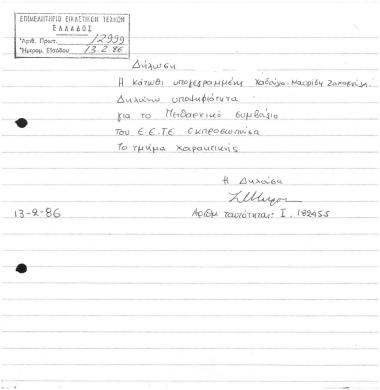 ΕΠΙΜΕΛΗΤΗΡΙΟ ΕΙΚΑΣΤΙΚΩΝ ΤΕΧΝΩΝ
ΕΛΛΑΔΟΣ
Άριθ. Πρωτ. 12999
Ήμερομ. Εἰσόδου 13.2.86
Δήλωση
Η κάτωθι υπογεγραμμένη
Δηλώνω υποψηφιότητα
για το Πειθαρχικό συμβούλιο
του Ε.Ε.Τ.Ε εκπροσωπώντας
το τμήμα χαρακτικής
Η Δηλούσα
13-2-86
Αριθμ ταυτότητας: Ι. 192455